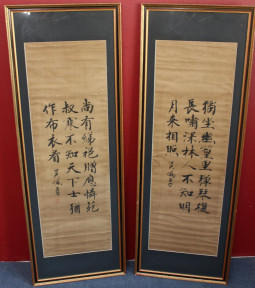 獨坐幽篁里彈琴復
長嘯深林人不知明
月来相照
尚有綈袍贈應憐范
叔寒不知天下士猶
作布衣看